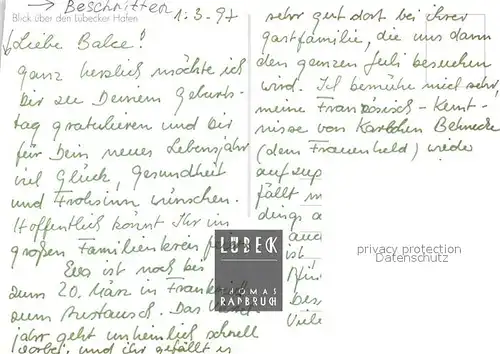 → Beschnitten
Blick über den Lübecker Hafen
1.3.97
Liebe Balce!
ganz herzlich möchte ich
Dir zu Deinem Geburts-
tag gratulieren und Dir
für Dein neues Lebensjahr
viel Glück, Gesundheit
und Frohsinn wünschen.
Hoffentlich könnt Ihr im
großen Familienkreis
Eva ist noch bis
zum 20. März in Frankreich
zum Austausch. Das
jahr geht unheimlich schnell
vorbei, und ihr gefällt's
sehr gut dort bei ihrer
gastfamilie, die uns dann
den ganzen Juli besuchen
wird. Ich bemühe mich sehr,
meine Französisch-Kennt-
nisse von Karlchen Behncke
(dem Frauenheld) wieder
auf
fällt m
dings a
auc
ist
für
bes
Viele
LÜBECK
THOMAS
RADBRUCH
privacy protection
Datenschutz